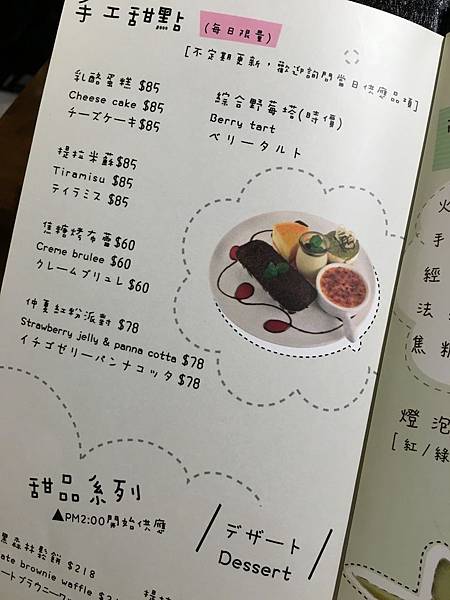 手工甜點 (每日限量)
[不定期更新，歡迎詢問當日供應品項]
乳酪蛋糕 $85
Cheese cake $85
チーズケーキ$85
綜合野莓塔(時價)
Berry tart
ベリータルト
提拉米蘇$85
Tiramisu $85
ティラミス $85
焦糖烤布蕾$60
Creme brulee $60
クレームブリュレ $60
仲夏紅粉派對 $78
Strawberry jelly & panna cotta $78
イチゴゼリーパンナコッタ $78
甜品系列
▲PM2:00開始供應
デザート
Dessert
黑森林鬆餅 $218
ate brownie waffle $2
ートブラウニーワ
提拉
火
手
經
法
焦糖
燈泡
[紅/綠